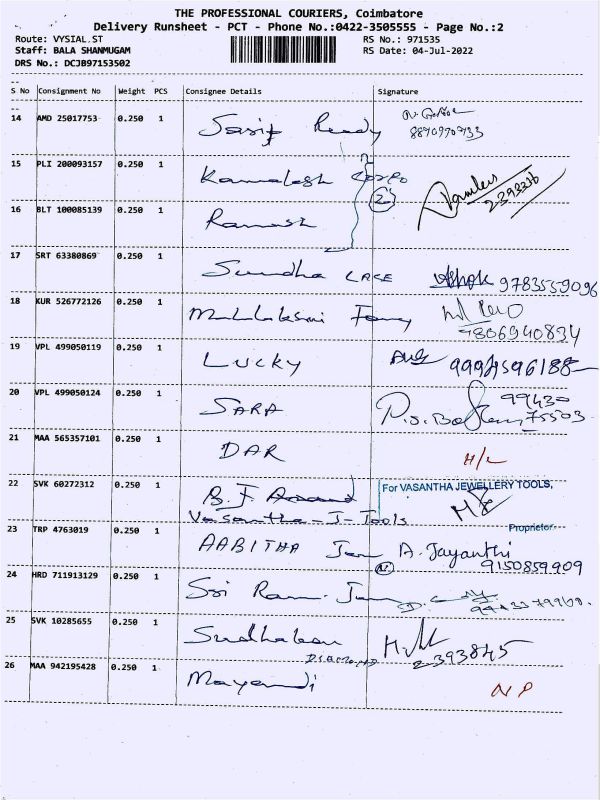 THE PROFESSIONAL COURIERS, Coimbatore
Delivery Runsheet - PCT - Phone No.:0422-3505555 - Page No.:2
Route: VYSIAL.ST RS No.: 971535
Staff: BALA SHANMUGAM RS Date: 04-Jul-2022
DRS No.: DCJ897153502
S No Consignment No Weight PCS Consignee Details Signature
14 AMD 25017753 0.250 1
15 PLI 200093157 0.250 1 Kamalesh
2
16 BLT 100085139 0.250 1 Ramesh
17 SRT 63380869 0.250 1 Sundha LACE Ashok 9783559096
18 KUR 526772126 0.250 1 9806940834
19 VPL 499050119 0.250 1 LUCKY
20 VPL 499050124 0.250 1 SARA 99430
75503
21 MAA 565357101 0.250 1 DAR H/L
22 SVK 60272312 0.250 1 B.J Anand For VASANTHA JEWELLERY TOOLS,
Vasantha-J-Tools Proprietor
23 TRP 4763019 0.250 1 AABITHA Jem A. Jayanthi
9150859909
24 HRD 711913129 0.250 1 Sri Ram Jem
25 SVK 10285655 0.250 1 Sudhakan
2393845
26 MAA 942195428 0.250 1 Mayandi NP